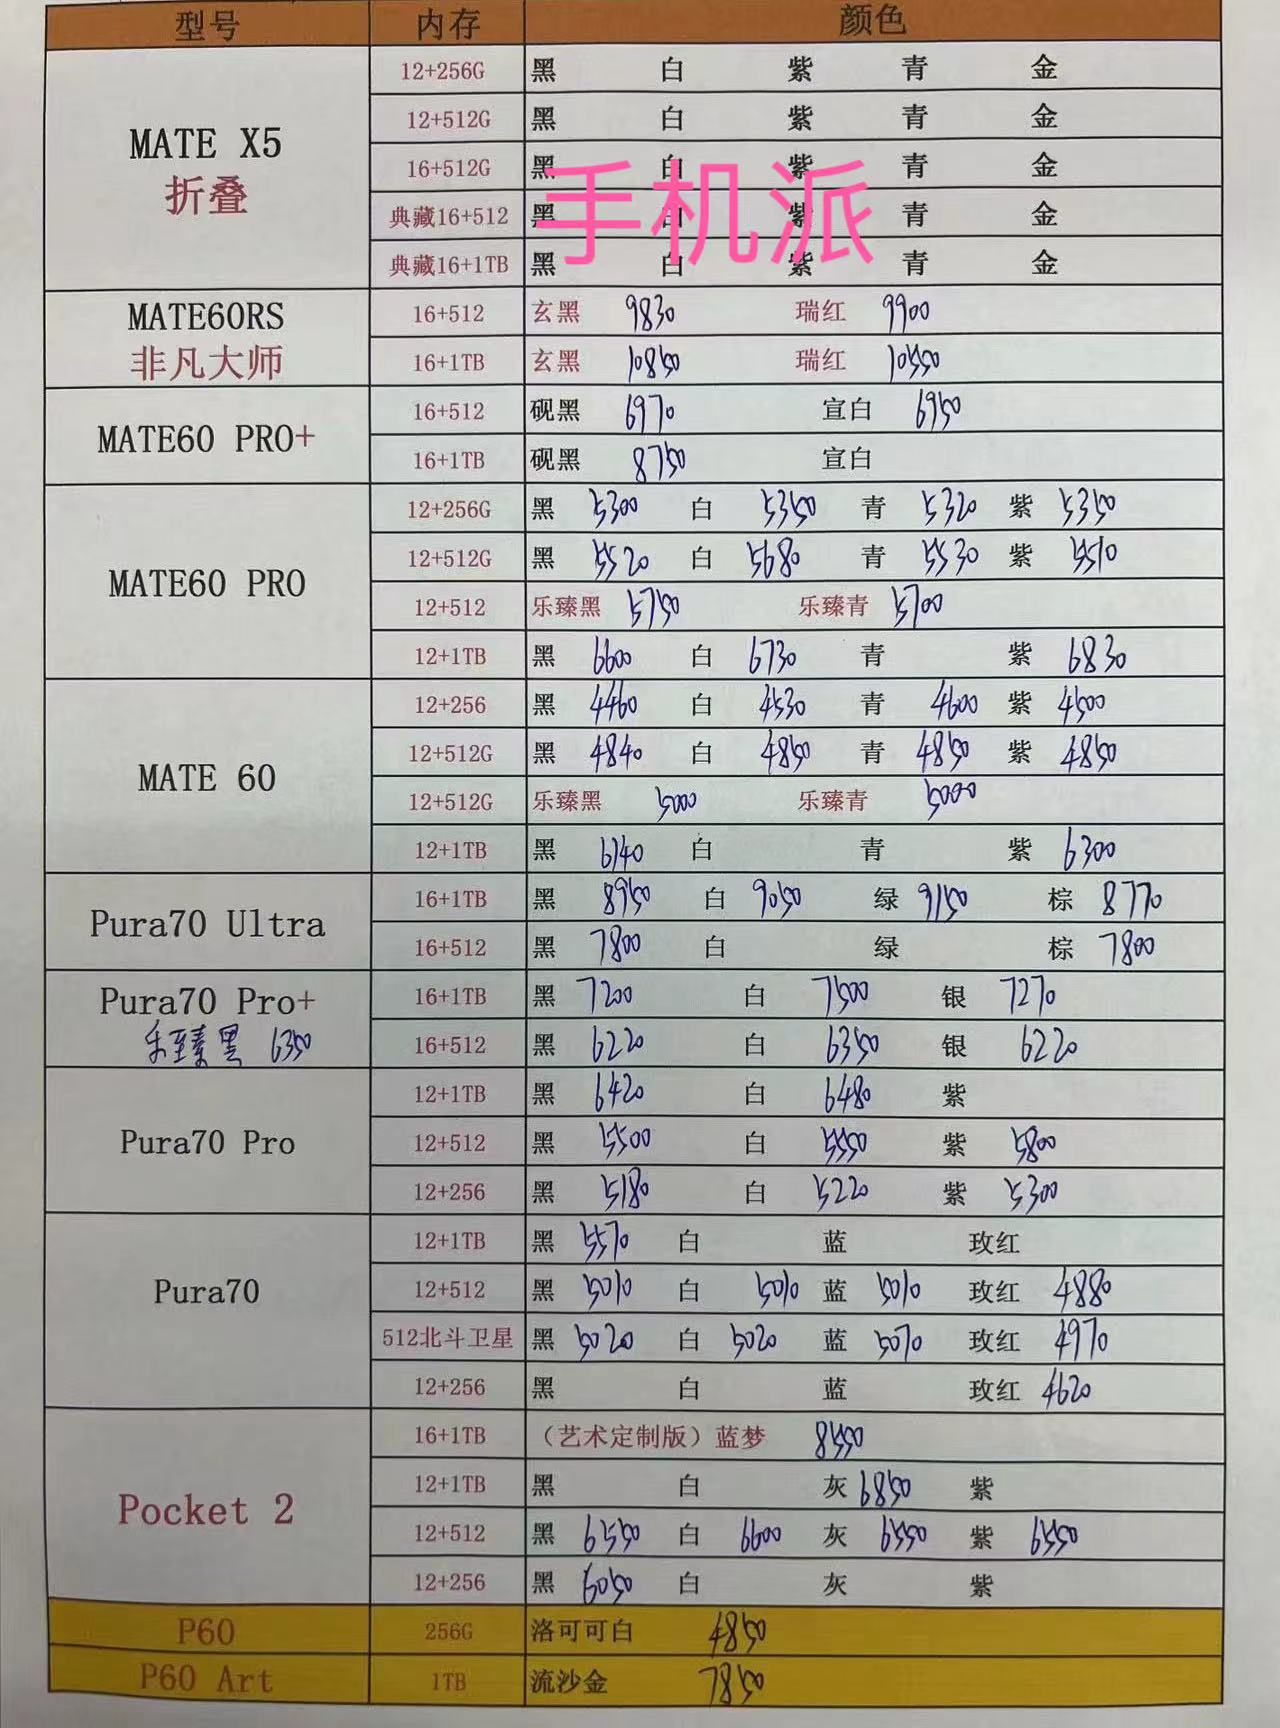 型号 内存 颜色
MATE X5
折叠
12+256G 黑 白 紫 青 金
12+512G 黑 白 紫 青 金
16+512G 黑 白 紫 青 金
手机派
典藏16+512 黑 白 紫 青 金
典藏16+1TB 黑 白 紫 青 金
MATE60RS
非凡大师
16+512 玄黑 9830 瑞红 9900
16+1TB 玄黑 10850 瑞红 10550
MATE60 PRO+
16+512 砚黑 6970 宣白 6950
16+1TB 砚黑 8750 宣白
MATE60 PRO
12+256G 黑 5300 白 5350 青 5320 紫 5350
12+512G 黑 5520 白 5680 青 5530 紫 5510
12+512 乐臻黑 5750 乐臻青 5700
12+1TB 黑 6600 白 6730 青 紫 6830
MATE 60
12+256 黑 4460 白 4530 青 4600 紫 4500
12+512G 黑 4840 白 4850 青 4850 紫 4850
12+512G 乐臻黑 5000 乐臻青 5000
12+1TB 黑 6140 白 青 紫 6300
Pura70 Ultra
16+1TB 黑 8950 白 9050 绿 9150 棕 8770
16+512 黑 7800 白 绿 棕 7800
Pura70 Pro+
乐臻黑 6350
16+1TB 黑 7200 白 7500 银 7270
16+512 黑 6220 白 6350 银 6220
Pura70 Pro
12+1TB 黑 6420 白 6480 紫
12+512 黑 5500 白 5550 紫 5800
12+256 黑 5180 白 5220 紫 5300
Pura70
12+1TB 黑 5570 白 蓝 玫红
12+512 黑 5010 白 5010 蓝 5010 玫红 4880
512北斗卫星 黑 5020 白 5020 蓝 5070 玫红 4970
12+256 黑 白 蓝 玫红 4620
Pocket 2
16+1TB （艺术定制版）蓝梦 8550
12+1TB 黑 白 灰 6850 紫
12+512 黑 6550 白 6600 灰 6550 紫 6550
12+256 黑 6050 白 灰 紫
P60 256G 洛可可白 4850
P60 Art 1TB 流沙金 7850